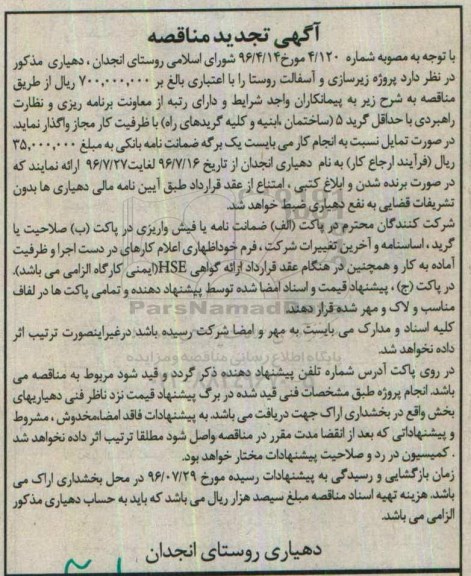 آگهی تجدید مناقصه
با توجه به مصوبه شماره ۴/۱۲۰ مورخ ۹۶/۴/۱۴ شورای اسلامی روستای انجدان ، دهیاری مذکور
در نظر دارد پروژه زیرسازی و آسفالت روستا را با اعتباری بالغ بر ۷۰۰,۰۰۰,۰۰۰ ریال از طریق
مناقصه به شرح زیر به پیمانکاران واجد شرایط و دارای رتبه از معاونت برنامه ریزی و نظارت
راهبردی با حداقل گرید ۵ (ساختمان ،ابنیه و کلیه گریدهای راه) با ظرفیت کار مجاز واگذار نماید.
در صورت تمایل نسبت به انجام کار می بایست یک برگه ضمانت نامه بانکی به مبلغ ۳۵,۰۰۰,۰۰۰
ریال (فرآیند ارجاع کار) به نام دهیاری انجدان از تاریخ ۹۶/۷/۱۶ لغایت ۹۶/۷/۲۷ ارائه نمایند که
در صورت برنده شدن و ابلاغ کتبی ، امتناع از عقد قرارداد طبق آیین نامه مالی دهیاری ها بدون
تشریفات قضایی به نفع دهیاری ضبط خواهد شد.
شرکت کنندگان محترم در پاکت (الف) ضمانت نامه یا فیش واریزی در پاکت (ب) صلاحیت یا
گرید ، اساسنامه و آخرین تغییرات شرکت ، فرم خوداظهاری اعلام کارهای در دست اجرا و ظرفیت
آماده به کار و همچنین در هنگام عقد قرارداد ارائه گواهی HSE(ایمنی کارگاه الزامی می باشد).
در پاکت (ج) ، پیشنهاد قیمت و اسناد امضا شده توسط پیشنهاد دهنده و تمامی پاکت ها در لفاف
مناسب و لاک و مهر شده قرار دهند.
کلیه اسناد و مدارک می بایست به مهر و امضا شرکت رسیده باشد درغیراینصورت ترتیب اثر
داده نخواهد شد.
در روی پاکت آدرس شماره تلفن پیشنهاد دهنده ذکر گردد و قید شود مربوط به مناقصه می
باشد. انجام پروژه طبق مشخصات فنی قید شده در برگ پیشنهاد قیمت نزد ناظر فنی دهیاریهای
بخش واقع در بخشداری اراک جهت دریافت می باشد. به پیشنهادات فاقد امضا،مخدوش ، مشروط
و پیشنهاداتی که بعد از انقضا مدت مقرر در مناقصه واصل شود مطلقا ترتیب اثر داده نخواهد شد
. کمیسیون در رد و صلاحیت پیشنهادات مختار خواهد بود.
زمان بازگشایی و رسیدگی به پیشنهادات رسیده مورخ ۹۶/۰۷/۲۹ در محل بخشداری اراک می
باشد. هزینه تهیه اسناد مناقصه مبلغ سیصد هزار ریال می باشد که باید به حساب دهیاری مذکور
الزامی می باشد.
دهیاری روستای انجدان